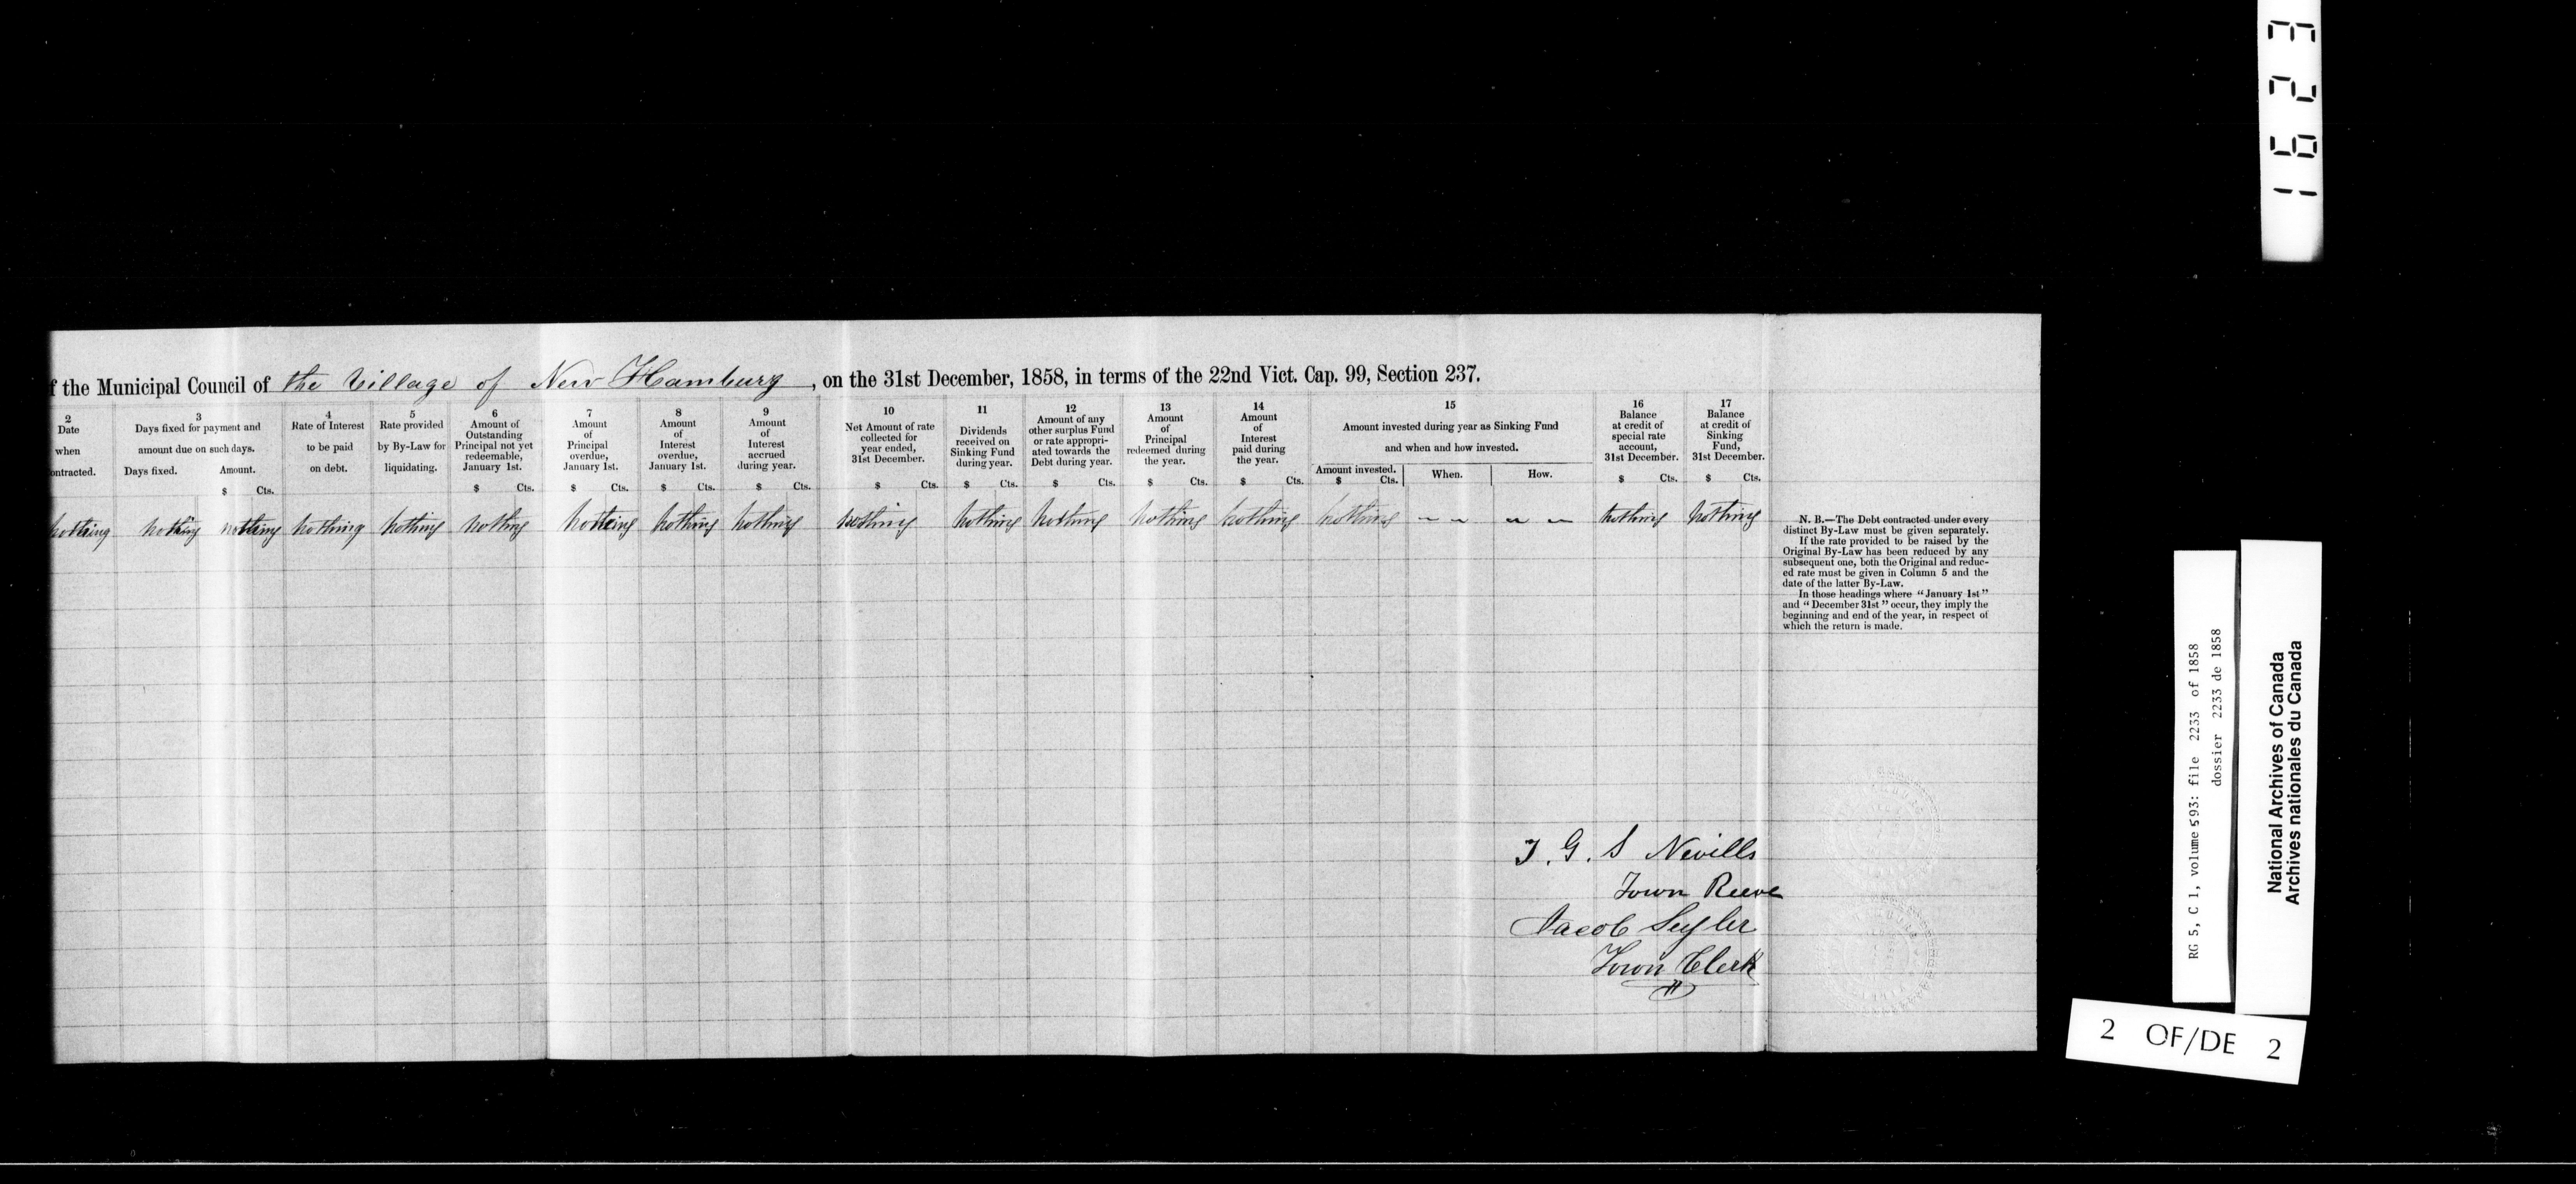 1623
f the Municipal Council of the Village of New Hamburg, on the 31st December, 1858, in terms of the 22nd Vict. Cap. 99, Section 237.
2
Date
when
ontracted.
3
Days fixed for payment and
amount due on such days.
Days fixed. Amount.
$ Cts.
4
Rate of Interest
to be paid
on debt.
5
Rate provided
by By-Law for
liquidating.
6
Amount of
Outstanding
Principal not yet
redeemable,
January 1st.
$ Cts.
7
Amount
of
Principal
overdue,
January 1st.
$ Cts.
8
Amount
of
Interest
overdue,
January 1st.
$ Cts.
9
Amount
of
Interest
accrued
during year.
$ Cts.
10
Net Amount of rate
collected for
year ended,
31st December.
$ Cts.
11
Dividends
received on
Sinking Fund
during year.
$ Cts.
12
Amount of any
other surplus Fund
or rate appropri-
ated towards the
Debt during year.
$ Cts.
13
Amount
of
Principal
redeemed during
the year.
$ Cts.
14
Amount
of
Interest
paid during
the year.
$ Cts.
15
Amount invested during year as Sinking Fund
and when and how invested.
Amount invested. When. How.
$ Cts.
16
Balance
at credit of
special rate
account,
31st December.
$ Cts.
17
Balance
at credit of
Sinking
Fund,
31st December.
$ Cts.
nothing nothing nothing nothing nothing nothing nothing nothing nothing nothing nothing nothing nothing nothing nothing – – – – nothing nothing
N. B.—The Debt contracted under every
distinct By-Law must be given separately.
If the rate provided to be raised by the
Original By-Law has been reduced by any
subsequent one, both the Original and reduc-
ed rate must be given in Column 5 and the
date of the latter By-Law.
In those headings where "January 1st"
and "December 31st" occur, they imply the
beginning and end of the year, in respect of
which the return is made.
J. G. S Nevills
Town Reeve
Jacob Seyler
Town Clerk
RG 5, C 1, volume 593: file 2233 of 1858
dossier 2233 de 1858
National Archives of Canada
Archives nationales du Canada
2 OF/DE 2